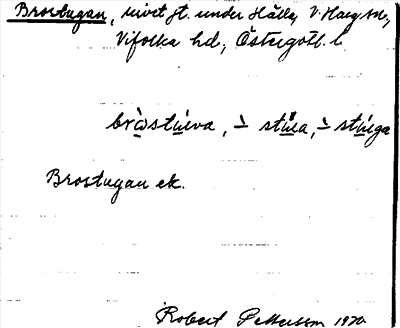 Brostugan, rivet st. under Hälla, V. Harg sn,
Vifolka hd, Östergötl. l.
bròstúeva, ∸ stúa, ∸ stúga
Brostugan ek.
Robert Pettersson 1930.